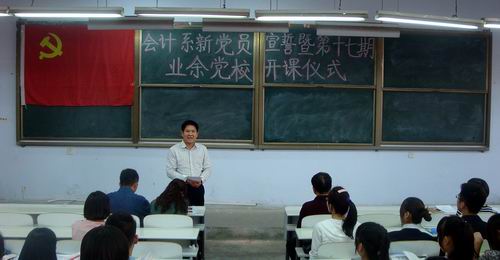 会计系新党员宣誓暨第十七期
业余党校开课仪式